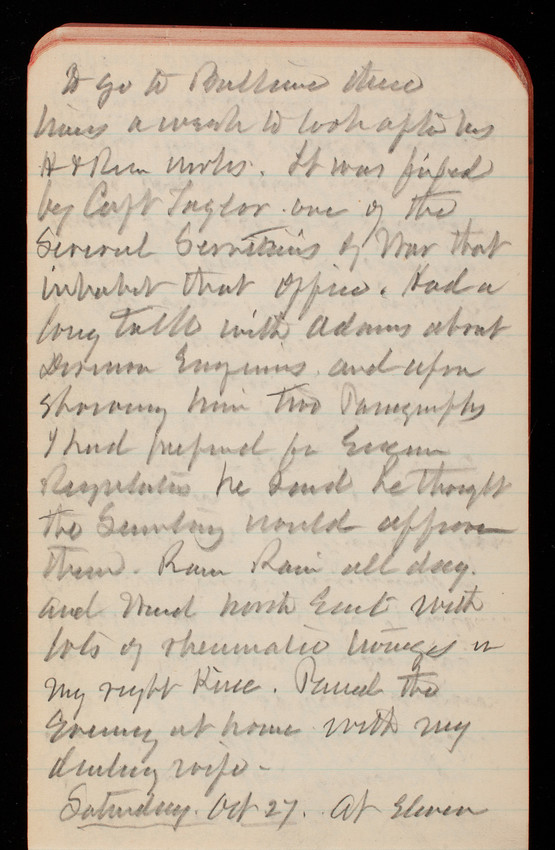 to go to Baltimore three
times a week to look after his
R & River works. It was fixed
by Capt Taylor one of the
several Secretaries of War that
inhabit that office. Had a
long talk with Adams about
Division Engineers and upon
showing him two Paragraphs
I had prepared for
Regulations he said he thought
the Secretary would approve
them. Rain Rain all day
and Wind North East with
lots of rheumatic twinges in
my right Knee. Passed the
Evening at home with my
darling wife -
Saturday. Oct 27. At Eleven